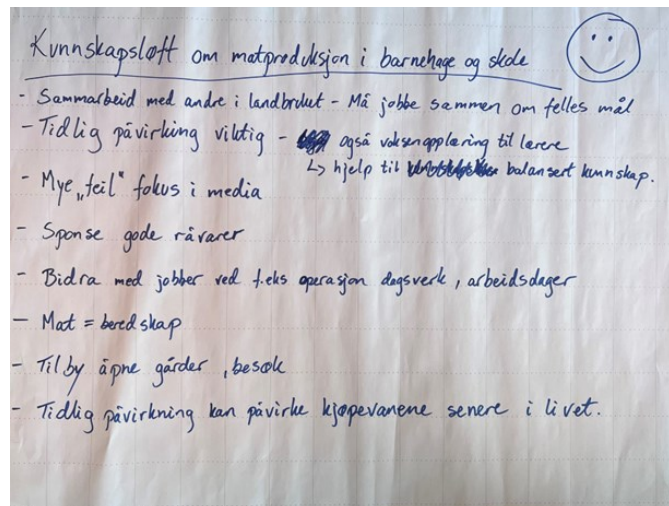 Kunnskapsløft om matproduksjon i barnehage og skole
- Sammarbeid med andre i landbruket - Må jobbe sammen om felles mål
- Tidlig påvirking viktig - også voksenopplæring til lærere
↳ hjelp til balansert kunnskap.
- Mye „feil" fokus i media
- Sponse gode råvarer
- Bidra med jobber ved f.eks operasjon dagsverk, arbeidsdager
- Mat = beredskap
- Tilby åpne gårder, besøk
- Tidlig påvirkning kan påvirke kjøpevanene senere i livet.